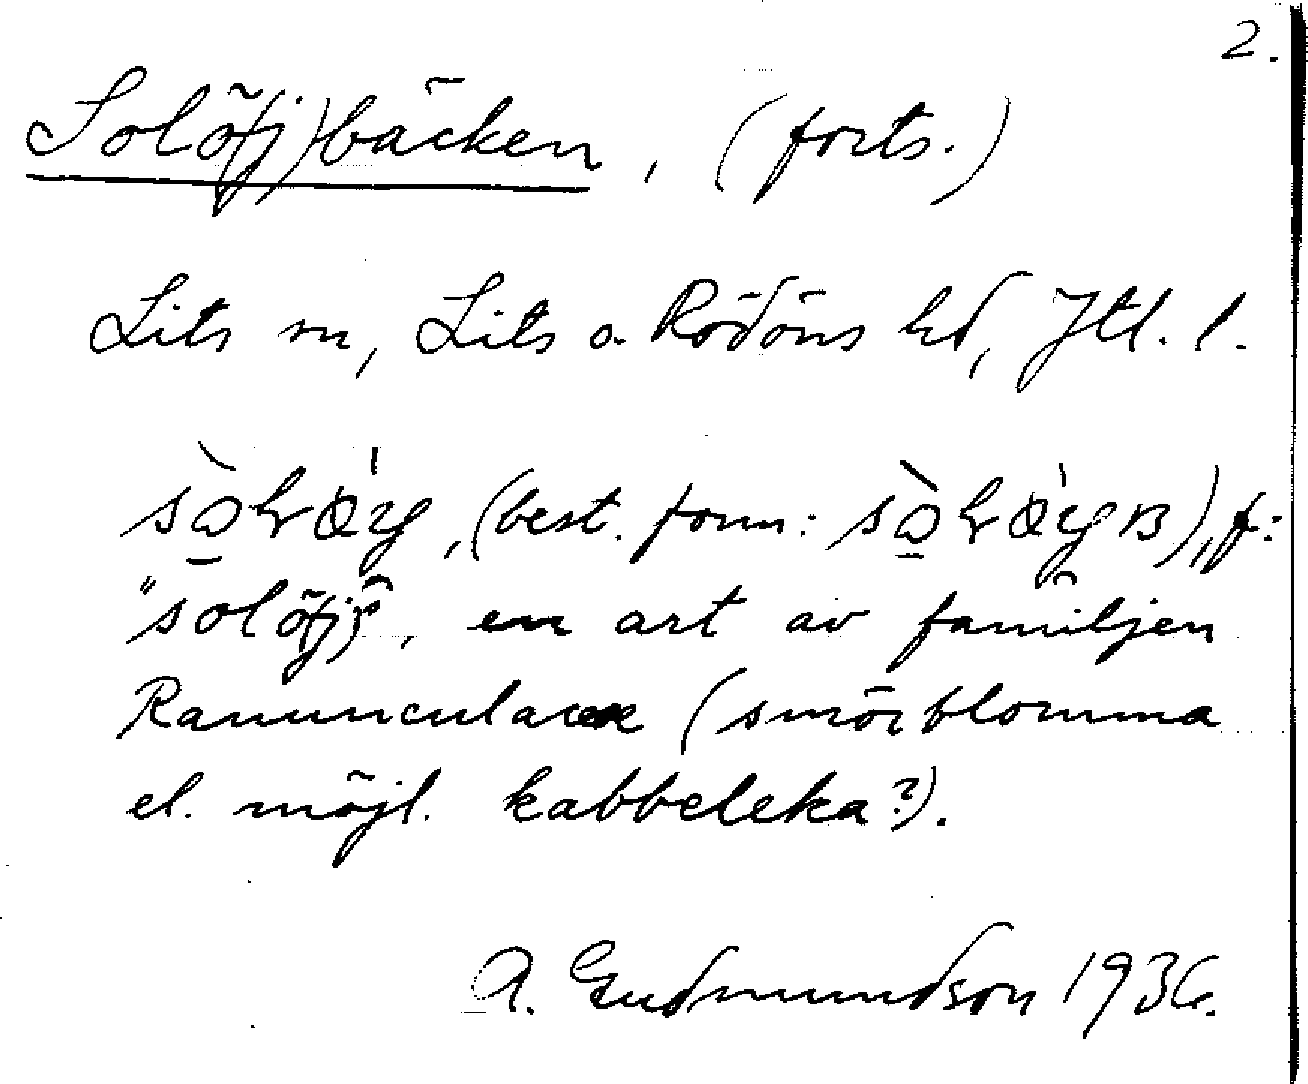 2.
Solöfj)bäcken, (forts.)
Lits sn, Lits o. Rödöns hd, Jtl. l.
(best. form: f:
"solöfj", en art av familjen
Ranunculaceæ (smörblomma
el. möjl. kabbeleka?).
A. Gudmundson 1936.